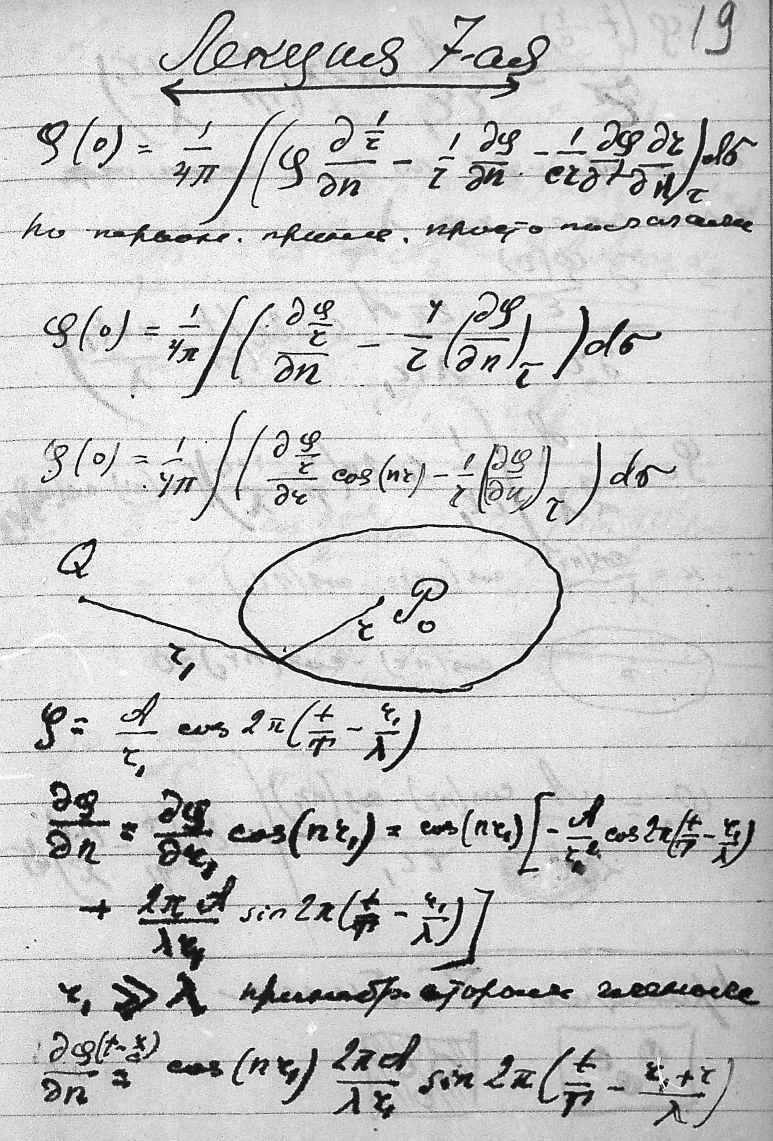 19
Лекция 7-ая
φ(0) = 1/4π ∫(φ ∂ 1/r / ∂n − 1/r ∂φ/∂n − 1/cr ∂φ/∂t ∂r/∂n)_τ dσ
по просто
φ(0) = 1/4π ∫(∂ φ/r / ∂n − 1/r (∂φ/∂n)_τ) dσ
φ(0) = 1/4π ∫(∂ φ/r / ∂r cos(nr) − 1/r (∂φ/∂n)_τ) dσ
Q
r P₀
r₁
φ = A/r₁ cos 2π(t/T − r₁/λ)
∂φ/∂n = ∂φ/∂r₁ cos(nr₁) = cos(nr₁)[− A/r₁² cos 2π(t/T − r₁/λ)
+ 2πA/λr₁ sin 2π(t/T − r₁/λ)]
r₁ ≫ λ
∂φ(t−r/c)/∂n = cos(nr₁) 2πA/λr₁ sin 2π(t/T − r₁+r/λ)